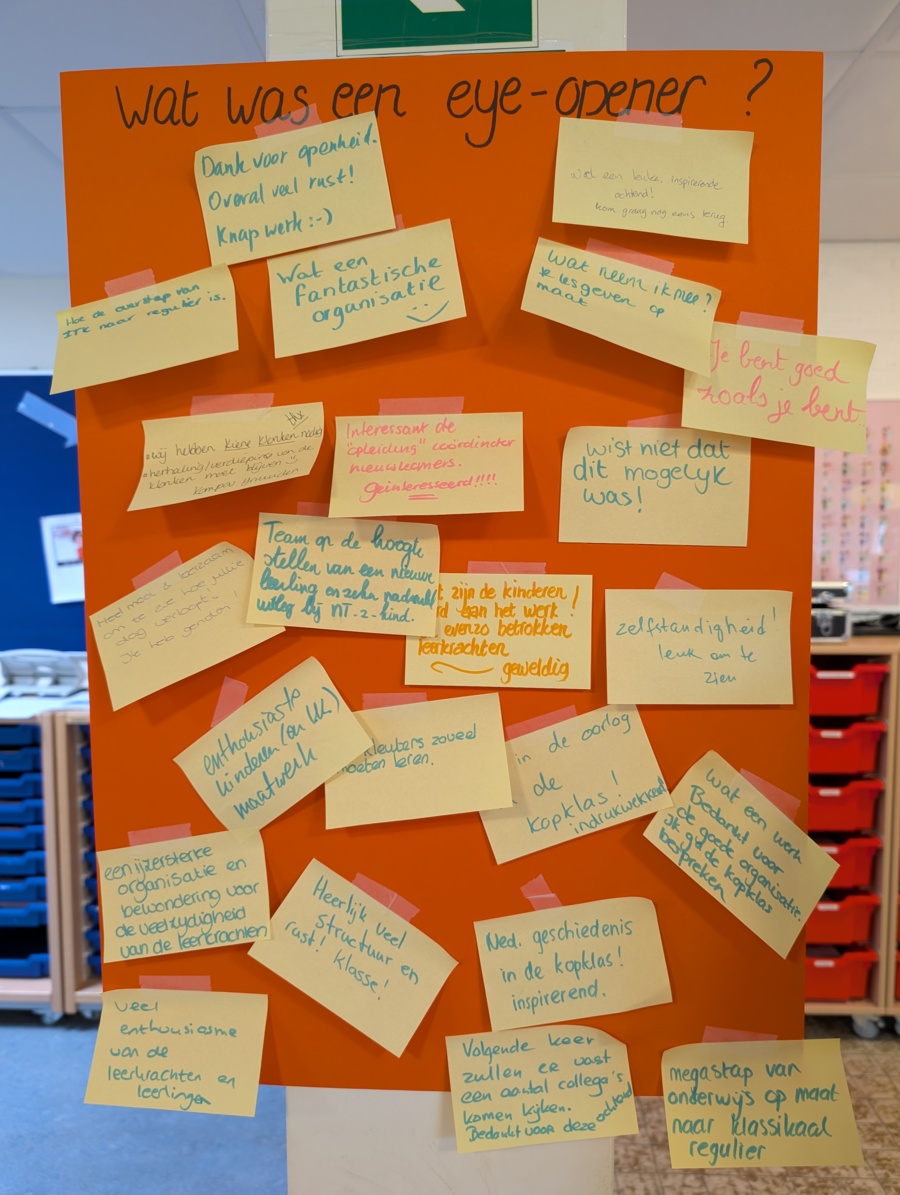 Wat was een eye-opener ?
Dank voor openheid.
Overal veel rust!
Knap werk :-)
Wat een leuke, inspirerende
ochtend!
kom graag nog eens terug
Wat een
fantastische
organisatie
Wat neem ik mee?
je lesgeven op
maat
Hoe de overstap van
ITK naar regulier is.
Je bent goed
zoals je bent.
wij hebben klanken nodig
herhaling/verdieping van de
klanken moet blijven
Interessant de
"opleiding" coördinator
nieuwkomers.
Geïnteresseerd!!!!
wist niet dat
dit mogelyk
was!
Team op de hoogte
stellen van een nieuwe
leerling en
uitleg bij NT-2-kind.
Heel mooi & leerzaam
om te zie hoe jullie
dag verloopt.
Ik heb genoten!
t zijn de kinderen !
rd aan het werk !
evenzo betrokken
leerkrachten
geweldig
zelfstandigheid!
leuk om te
zien
enthousiaste
kinderen (en lkr.)
maatwerk
kleuters zoveel
moeten leren.
in de oorlog
de
kopklas!
indrukwekkend
Wat een werk
Bedankt voor
de goede organisatie.
Ik ga de kopklas
bespreken
een ijzersterke
organisatie en
bewondering voor
de veelzydigheid
van de leerkrachten
Heerlijk veel
structuur en
rust! Klasse!
Ned. geschiedenis
in de kopklas!
inspirerend.
Veel
enthousiasme
van de
leerkrachten en
leerlingen
Volgende keer
zullen er vast
een aantal collega's
komen kijken.
Bedankt voor deze ochtend
megastap van
onderwijs op maat
naar klassikaal
regulier